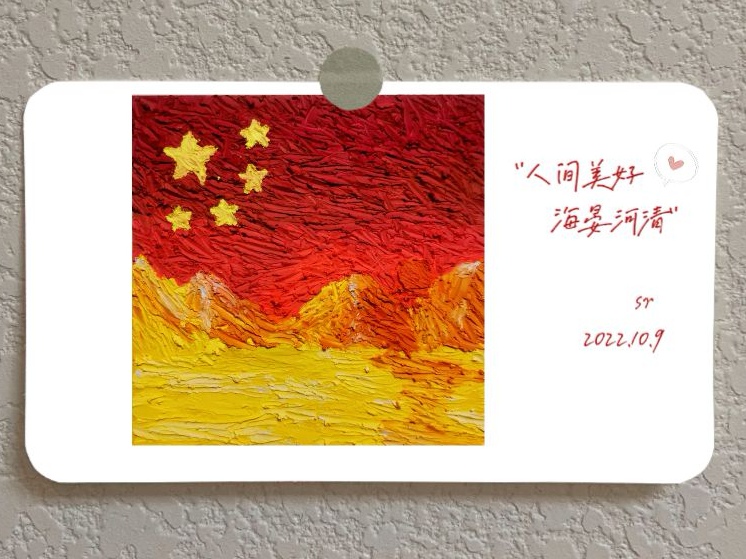 "人间美好
海晏河清"
sr
2022.10.9